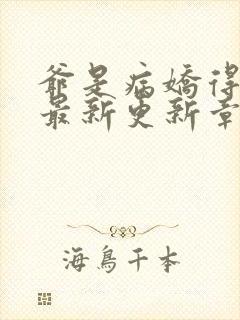 爺是病嬌得
最新更新章
海鳥千本